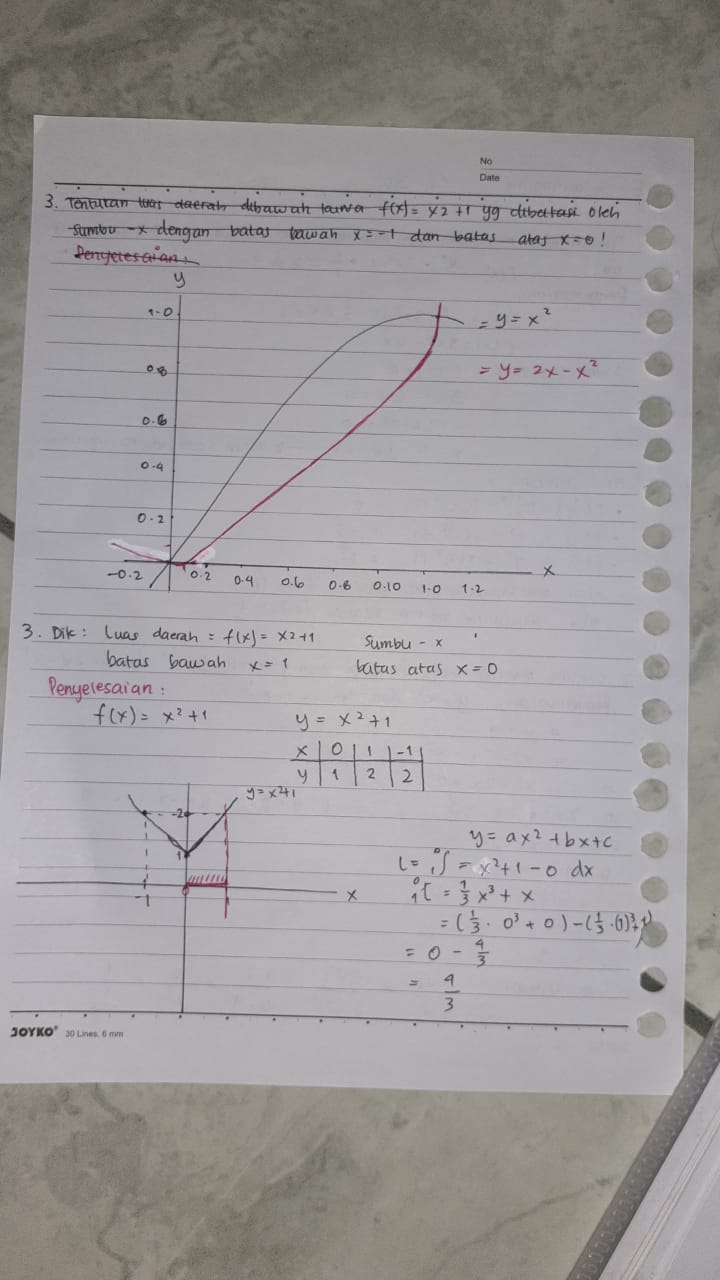 No
Date
3. Tentukan luas daerah dibawah kurva f(x) = x2 +1 yg dibatasi oleh
Sumbu -x dengan batas bawah x = -1 dan batas atas x = 0 !
Penyelesaian :
y
1.0
0.8
0.6
0.4
0.2
= y = x²
= y = 2x - x²
-0.2 0.2 0.4 0.6 0.8 0.10 1.0 1.2 x
3. Dik : luas daerah = f(x) = x2+1 Sumbu - x
batas bawah x = 1 batas atas x = 0
Penyelesaian :
f(x) = x² +1 y = x² +1
x 0 1 -1
y 1 2 2
y = x2+1
2
1
-1 0 x
y = ax² + bx + c
L = ₁∫⁰ = x²+1 - 0 dx
= 1/3 x³ + x
= (1/3 . 0³ + 0) - (1/3 . (1)³ + 1)
= 0 - 4/3
= 4/3
JOYKO® 30 Lines, 6 mm